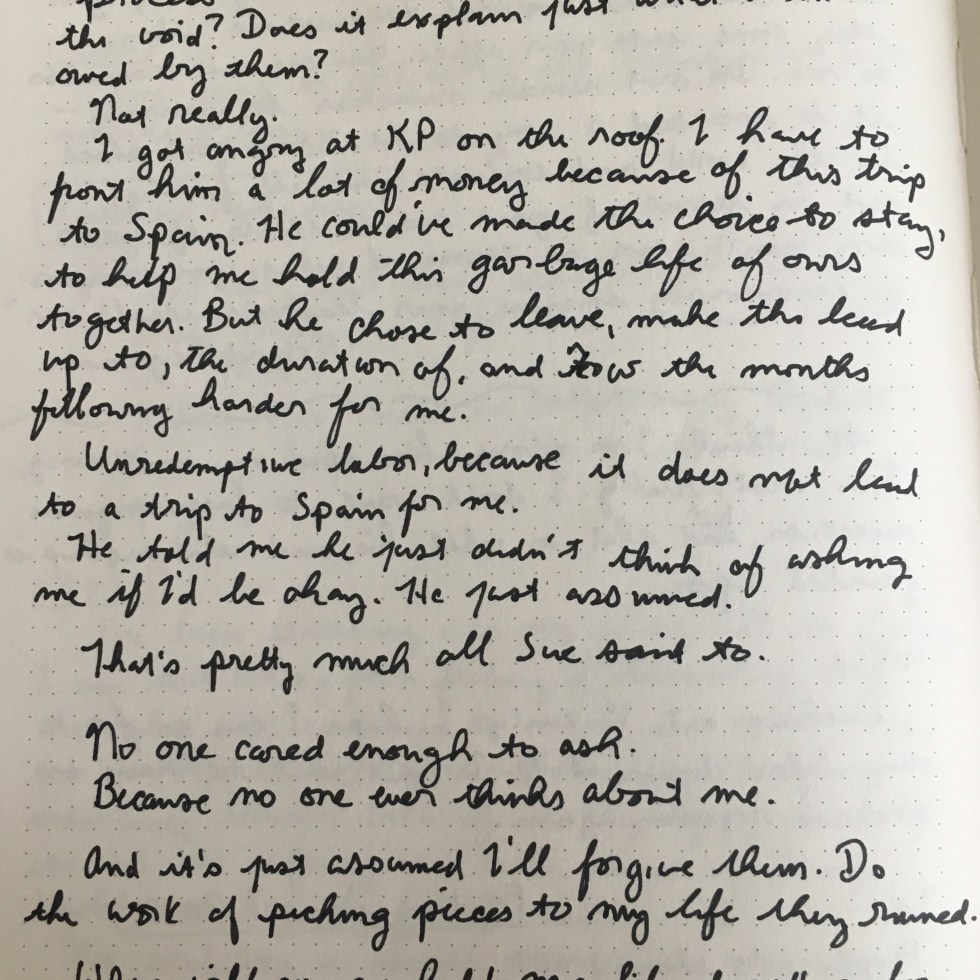 process
the void? Does it explain just what I am
owed by them?
Not really.
I got angry at KP on the roof. I have to
front him a lot of money because of this trip
to Spain. He could've made the choice to stay,
to help me hold this garbage life of ours
together. But he chose to leave, make the lead
up to, the duration of, and now the months
following harder for me.
Unredemptive labor, because it does not lead
to a trip to Spain for me.
He told me he just didn't think of asking
me if I'd be okay. He just assumed.
That's pretty much all Sue said to.
No one cared enough to ask.
Because no one ever thinks about me.
And it's just assumed I'll forgive them. Do
the work of piecing pieces to my life they ruined.